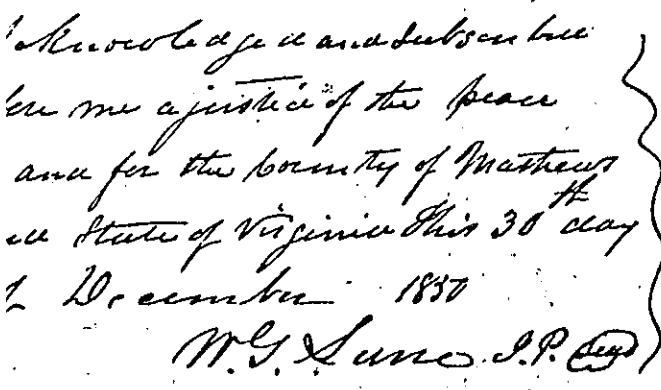 acknowledged and subscribed
before me a justice of the peace
and for the County of Mathews
and State of Virginia this 30th day
of December 1850
W. G. Lane J.P. Seal